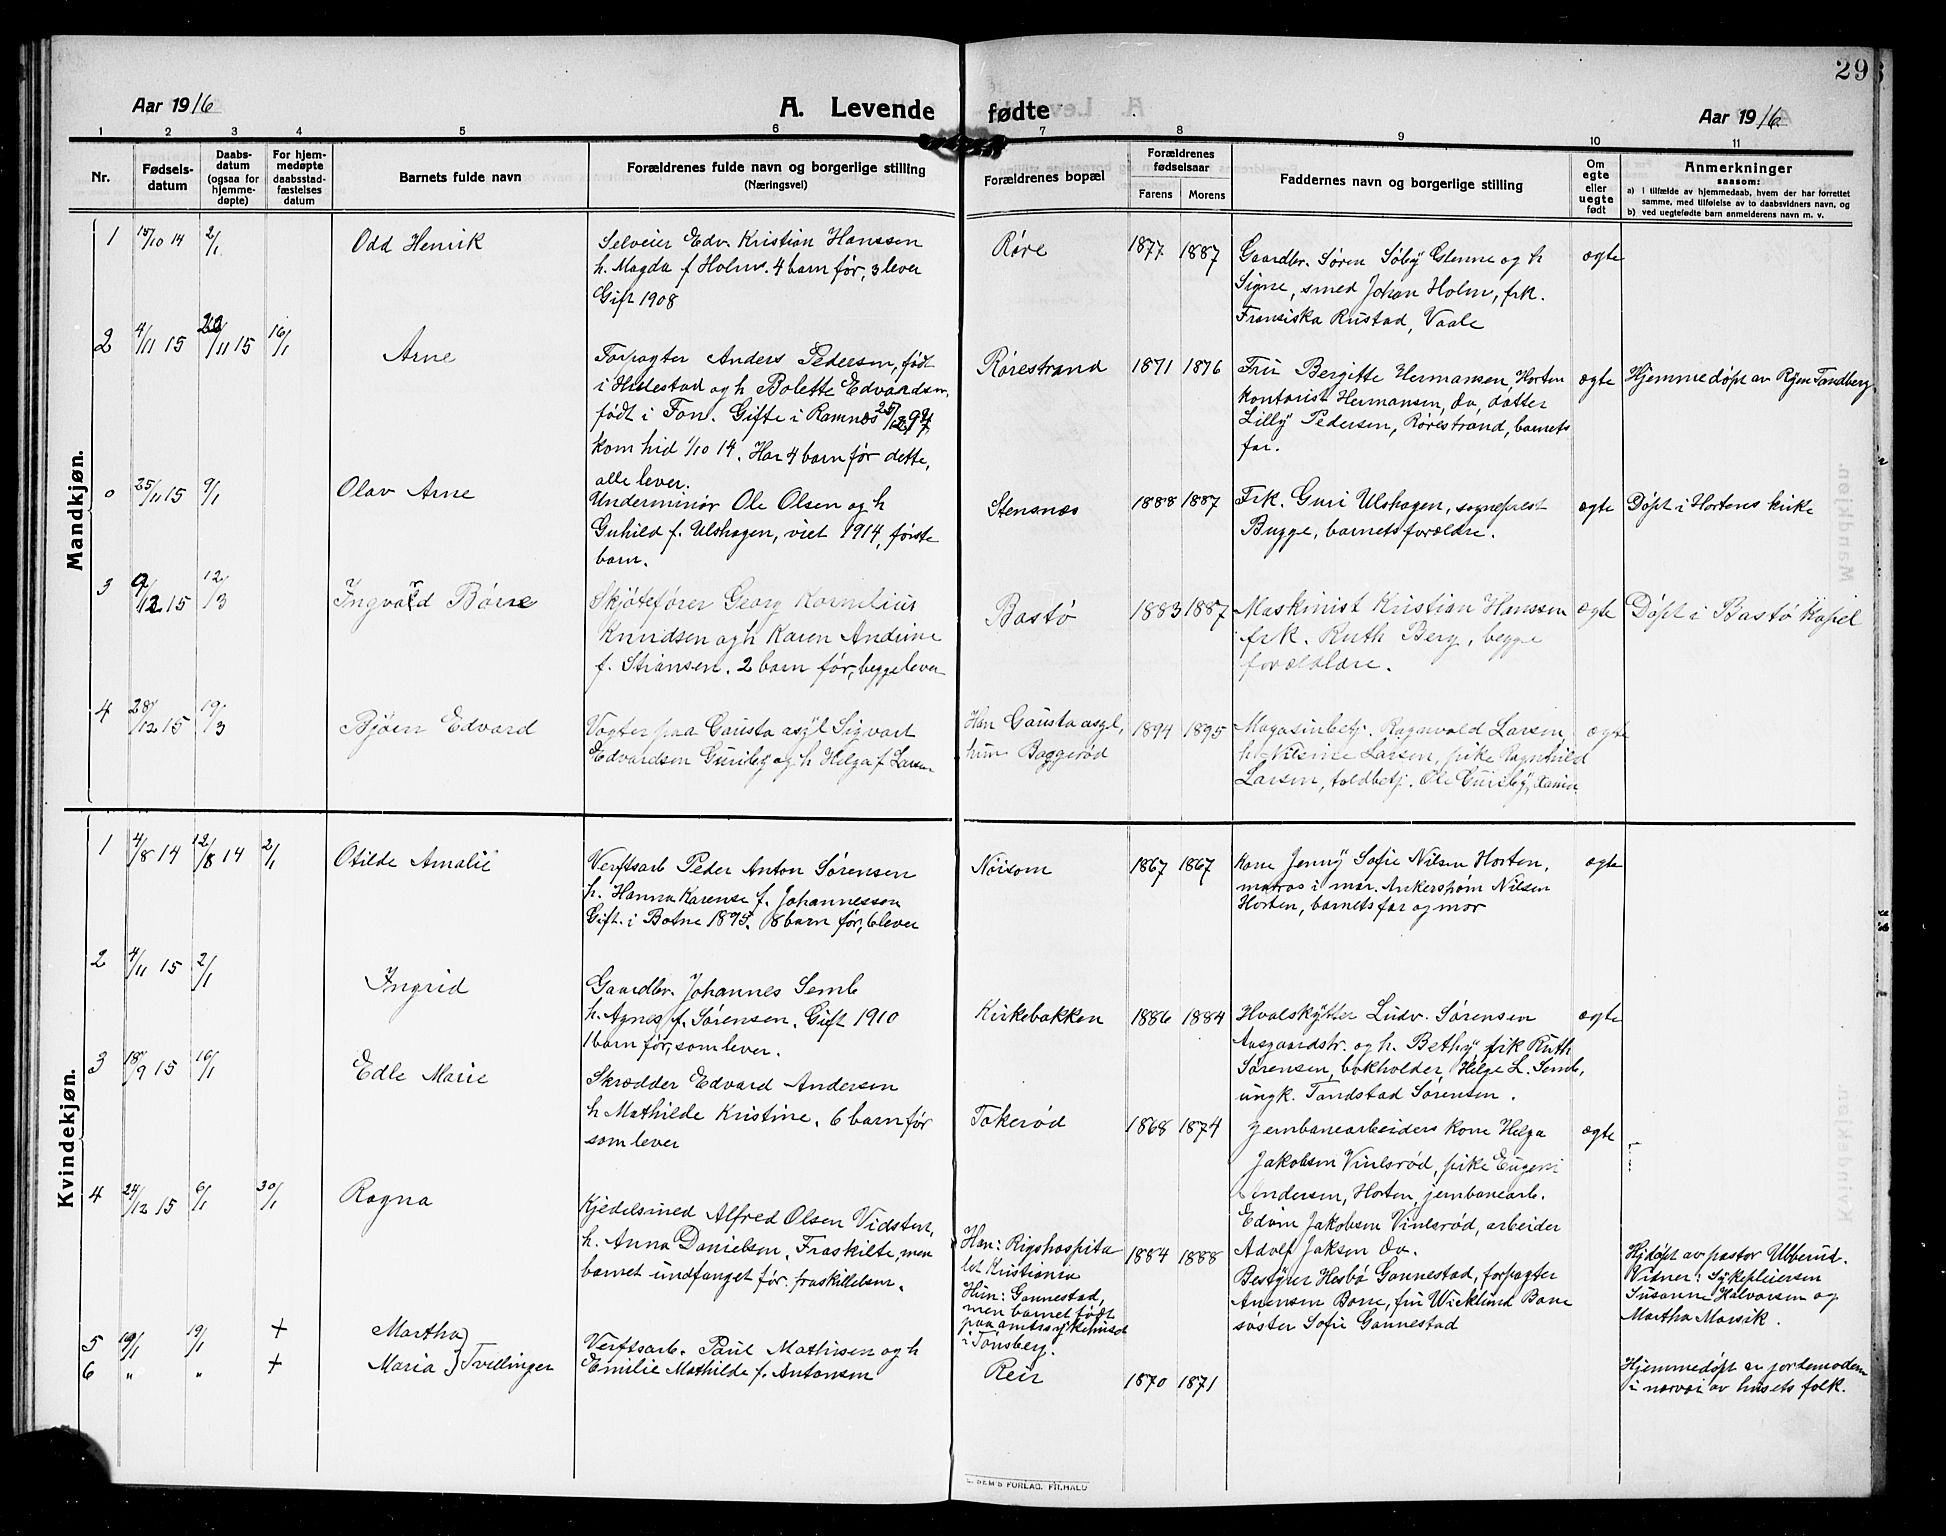 29
Aar 1916
A. Levende fødte
Aar 1916
1 2 3 4 5 6 7 8 9 10 11
Nr.
Fødsels-
datum
Daabs-
datum
(ogsaa for
hjemme-
døpte)
For hjem-
medøpte
daabsstad-
fæstelses
datum
Barnets fulde navn
Forældrenes fulde navn og borgerlige stilling
(Næringsvei)
Forældrenes bopæl
Forældrenes
fødselsaar
Farens Morens
Faddernes navn og borgerlige stilling
Om
egte
eller
uegte
født
Anmerkninger
saasom:
a) i tilfælde av hjemmedaab, hvem der har forrettet
samme, med tilføielse av to daabsvidners navn, og
b) ved uegtefødte barn anmelderens navn m. v.
Mandkjøn.
1 15/10 14 2/1 Odd Henrik
Selveier Edv. Kristian Hanssen
h. Magda f Holm. 4 barn før, 3 lever
Gift 1908
Røre 1877 1887
Gaardbr. Søren Søby Glenne og h
Signe, smed Johan Holm, frk.
Fransiska Rustad, Vaale
ægte
2 4/11 15 22/11 15 16/1 Arne
Forpagter Anders Pedersen, født
i Hillestad og h Bolette Edvardsen,
født i Fon. Gifte i Ramnæs 25/12 97,
kom hid 1/10 14. Har 4 barn før dette,
alle lever.
Rørestrand 1871 1876
Fru Bergitte Hermansen, Horten
kontorist Hermansen, do, datter
Lilly Pedersen, Rørestrand, barnets
far.
ægte
Hjemmedøpt av Rjm Tandberg
0 25/11 15 9/1 Olav Arne
Underminør Ole Olsen og h
Guhild f. Ulshagen, viet 1914, første
barn.
Stensnæs 1888 1887
Frk. Guri Ulshagen, sogneprest
Bugge, barnets forældre.
ægte
Døpt i Hortens kirke
3 9/12 15 12/3 Ingvald Børre
Skjøtefører Georg Kornelius
Knudsen og h Karen Andrine
f. Stiansen. 2 barn før, begge lever
Bastø 1883 1887
Maskinist Kristian Hanssen
frk. Ruth Berg, begge
forældre.
ægte
Døpt i Bastø Kapel
4 28/12 15 19/3 Bjøen Edvard
Vogter paa Gausta asyl Sigvart
Edvardsen Guriby og h Helga f Larsen
Han Gausta asyl,
hun Baggerød
1894 1895
Magasinbetj. Ragnvald Larsen,
h. Nilsine Larsen, pike Ragnhild
Larsen, toldbetj. Ole Guriby,
ægte
Kvindekjøn.
1 4/8 14 12/8 14 2/1 Otilde Amalie
Verftsarb Peder Anton Sørensen
h. Hanna Karense f. Johannessen
Gift. i Botne 1895. 8 barn før, 6 lever
Nøisom 1867 1867
Kone Jenny Sofie Nilsen Horten,
matros i mar. Ankershøm Nilsen
Horten, barnets far og mor
ægte
2 4/11 15 2/1 Ingrid
Gaardbr. Johannes Semb
h. Agnes f. Sørensen. Gift 1910
1 barn før, som lever.
Kirkebakken 1886 1884
Hvalskytter Ludv. Sørensen
Aasgaardstr. og h. Bethy, frk Ruth
Sørensen, bokholder Helge L. Semb,
ungk. Tandstad Sørensen.
ægte
3 18/9 15 16/1 Edle Marie
Skrædder Edvard Andersen
h Mathilde Kristine. 6 barn før
som lever
Takerød 1868 1874
Jernbanearbeiders kone Helga
Jakobsen Vinlsrød, pike Eugeni
Andersen, Horten, jernbanearb.
Edvin Jakobsen Vinlsrød, arbeider
Adolf Jaksen do.
ægte
4 24/12 15 6/1 30/1 Ragna
Kjedelsmed Alfred Olsen Vidsten,
h. Anna Danielsen. Fraskilte, men
barnet undfanget før fraskillelsen.
Han: Rigshospita
let Kristiania
Hun: Gannestad,
men barnet født
paa amtssykehuset
i Tønsberg.
1884 1888
Bestyrer Hesbø Gannestad, forpagter
Arensen Borre, fru Wicklund Borre
søster Sofie Gannestad
Hjdøpt av pastor Ubberud.
Vidner: Sykepleiersen
Susanne Halvorsen og
Martha Marsik.
5 19/1 19/1 + Martha
6 " " + Maria } Tvillinger
Verftsarb. Paul Mathisen og h
Emilie Mathilde f. Antonsen
Reir 1870 1871
Hjemmedøpt av jordemoderen
i nærvær av husets folk.
E. SEM'S FORLAG. FR.HALD